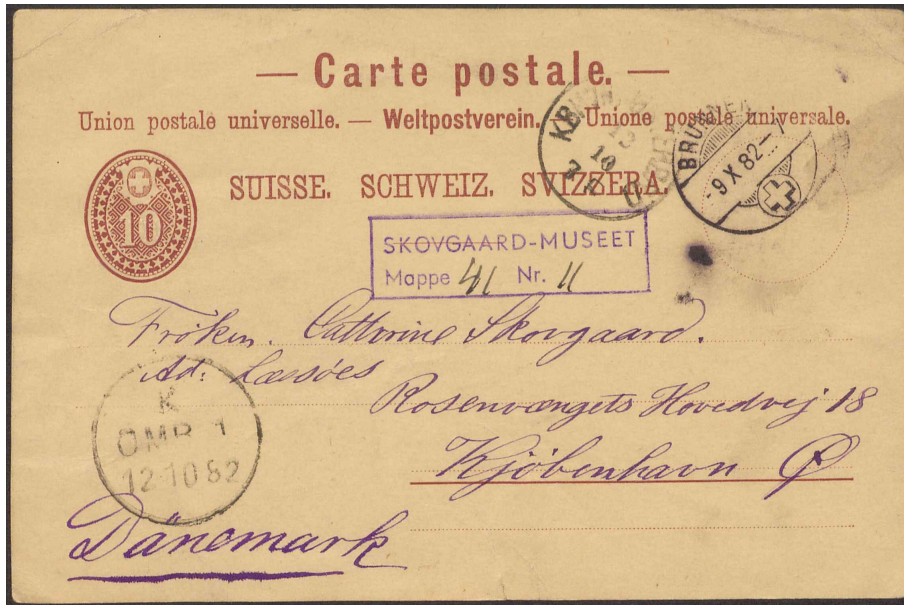 — Carte postale. —
Union postale universelle. — Weltpostverein. — Unione postale universale.
SUISSE. SCHWEIZ. SVIZZERA.
10
BRUNNEN
-9 X 82--7
10
SKOVGAARD-MUSEET
Mappe 41 Nr. 11
Frøken. Cathrine Skovgaard.
Ad: Læssøes
Rosenvængets Hovedvej 18
Kjöbenhavn Ø
K
OMB 1
12 10 82
Dänemark